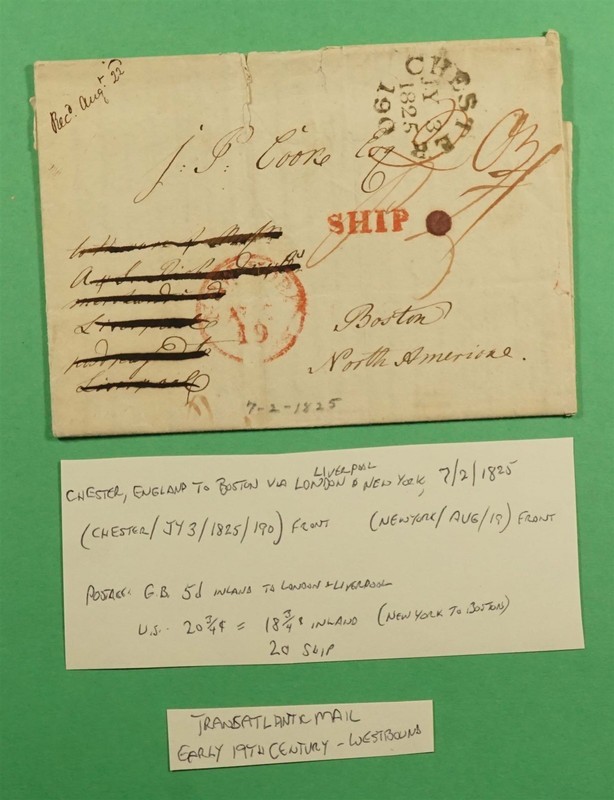 Rec.d Aug.t 22
CHESTER
JY 3
1825
190
J: P: Cooke Esq
SHIP
AUG
19
Liverpool
Liverpool
Boston
North Americae.
7-2-1825
LIVERPOOL
CHESTER, ENGLAND TO BOSTON VIA LONDON & NEW YORK, 7/2/1825
(CHESTER/JY3/1825/190) FRONT (NEWYORK/AUG/19) FRONT
POSTAGE: G.B. 5d INLAND TO LONDON & LIVERPOOL
U.S. 20 3/4¢ = 18 3/4¢ INLAND (NEW YORK TO BOSTON)
2¢ SHIP
TRANSATLANTIC MAIL
EARLY 19TH CENTURY - WESTBOUND